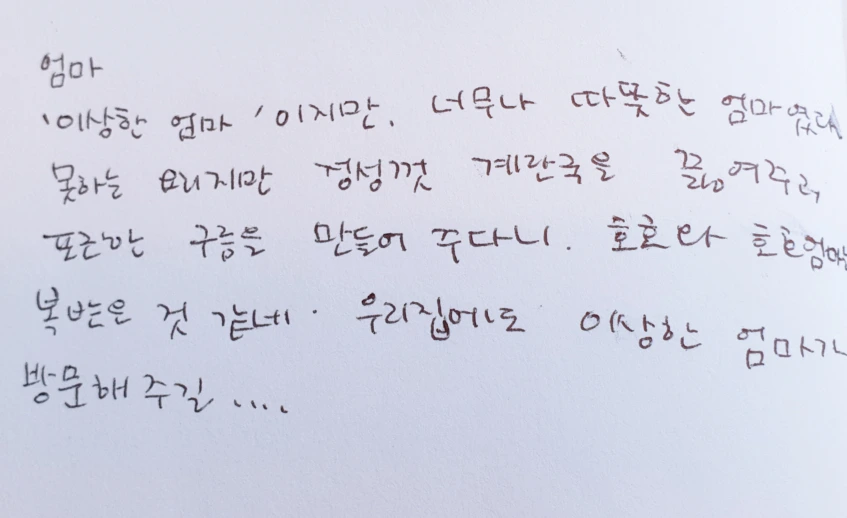 엄마
'이상한 엄마'이지만. 너무나 따뜻한 엄마였다
못하는 요리지만 정성껏 계란국을 끓여주고,
포근한 구름을 만들어 주다니. 호호와 호호엄마는
복받은 것 같네. 우리집에도 이상한 엄마가
방문해 주길 ....